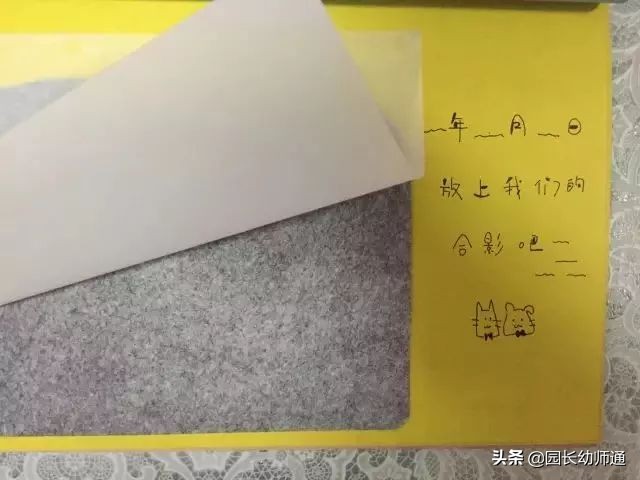 __年__月__日
放上我们的
合影吧
头条 @园长幼师通